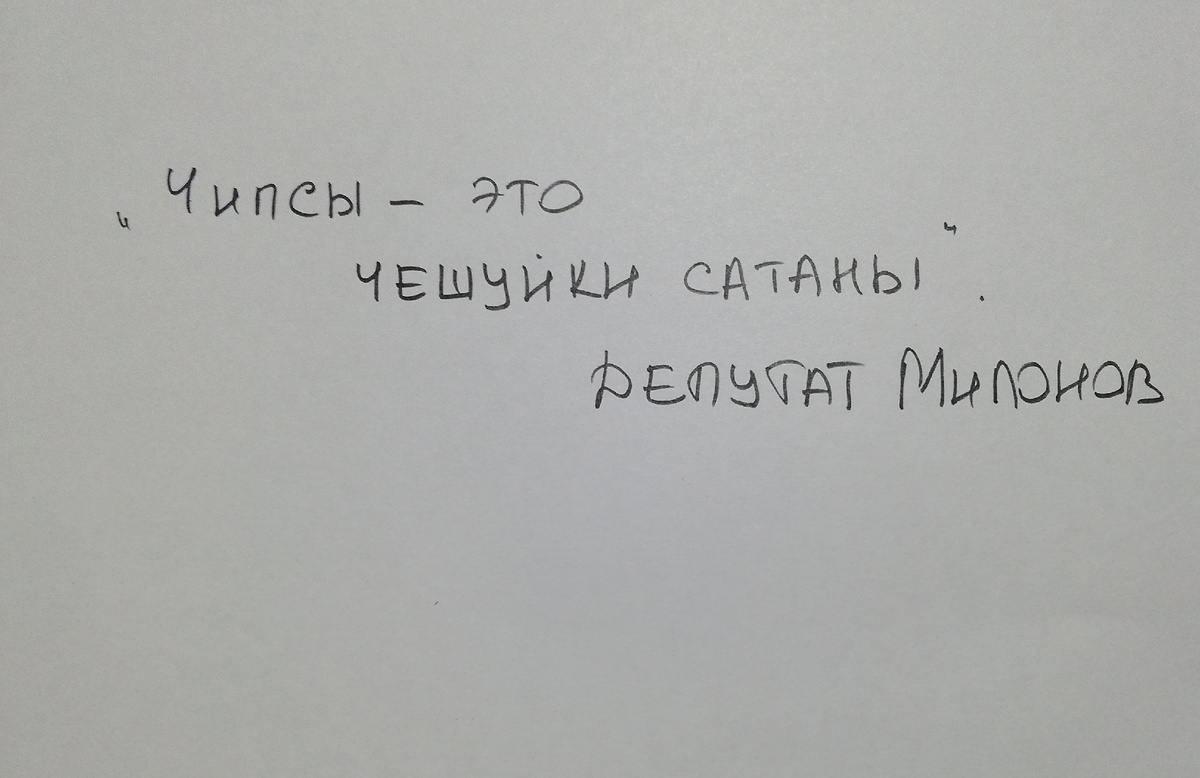 „Чипсы – это
чешуйки сатаны".
Депутат Милонов